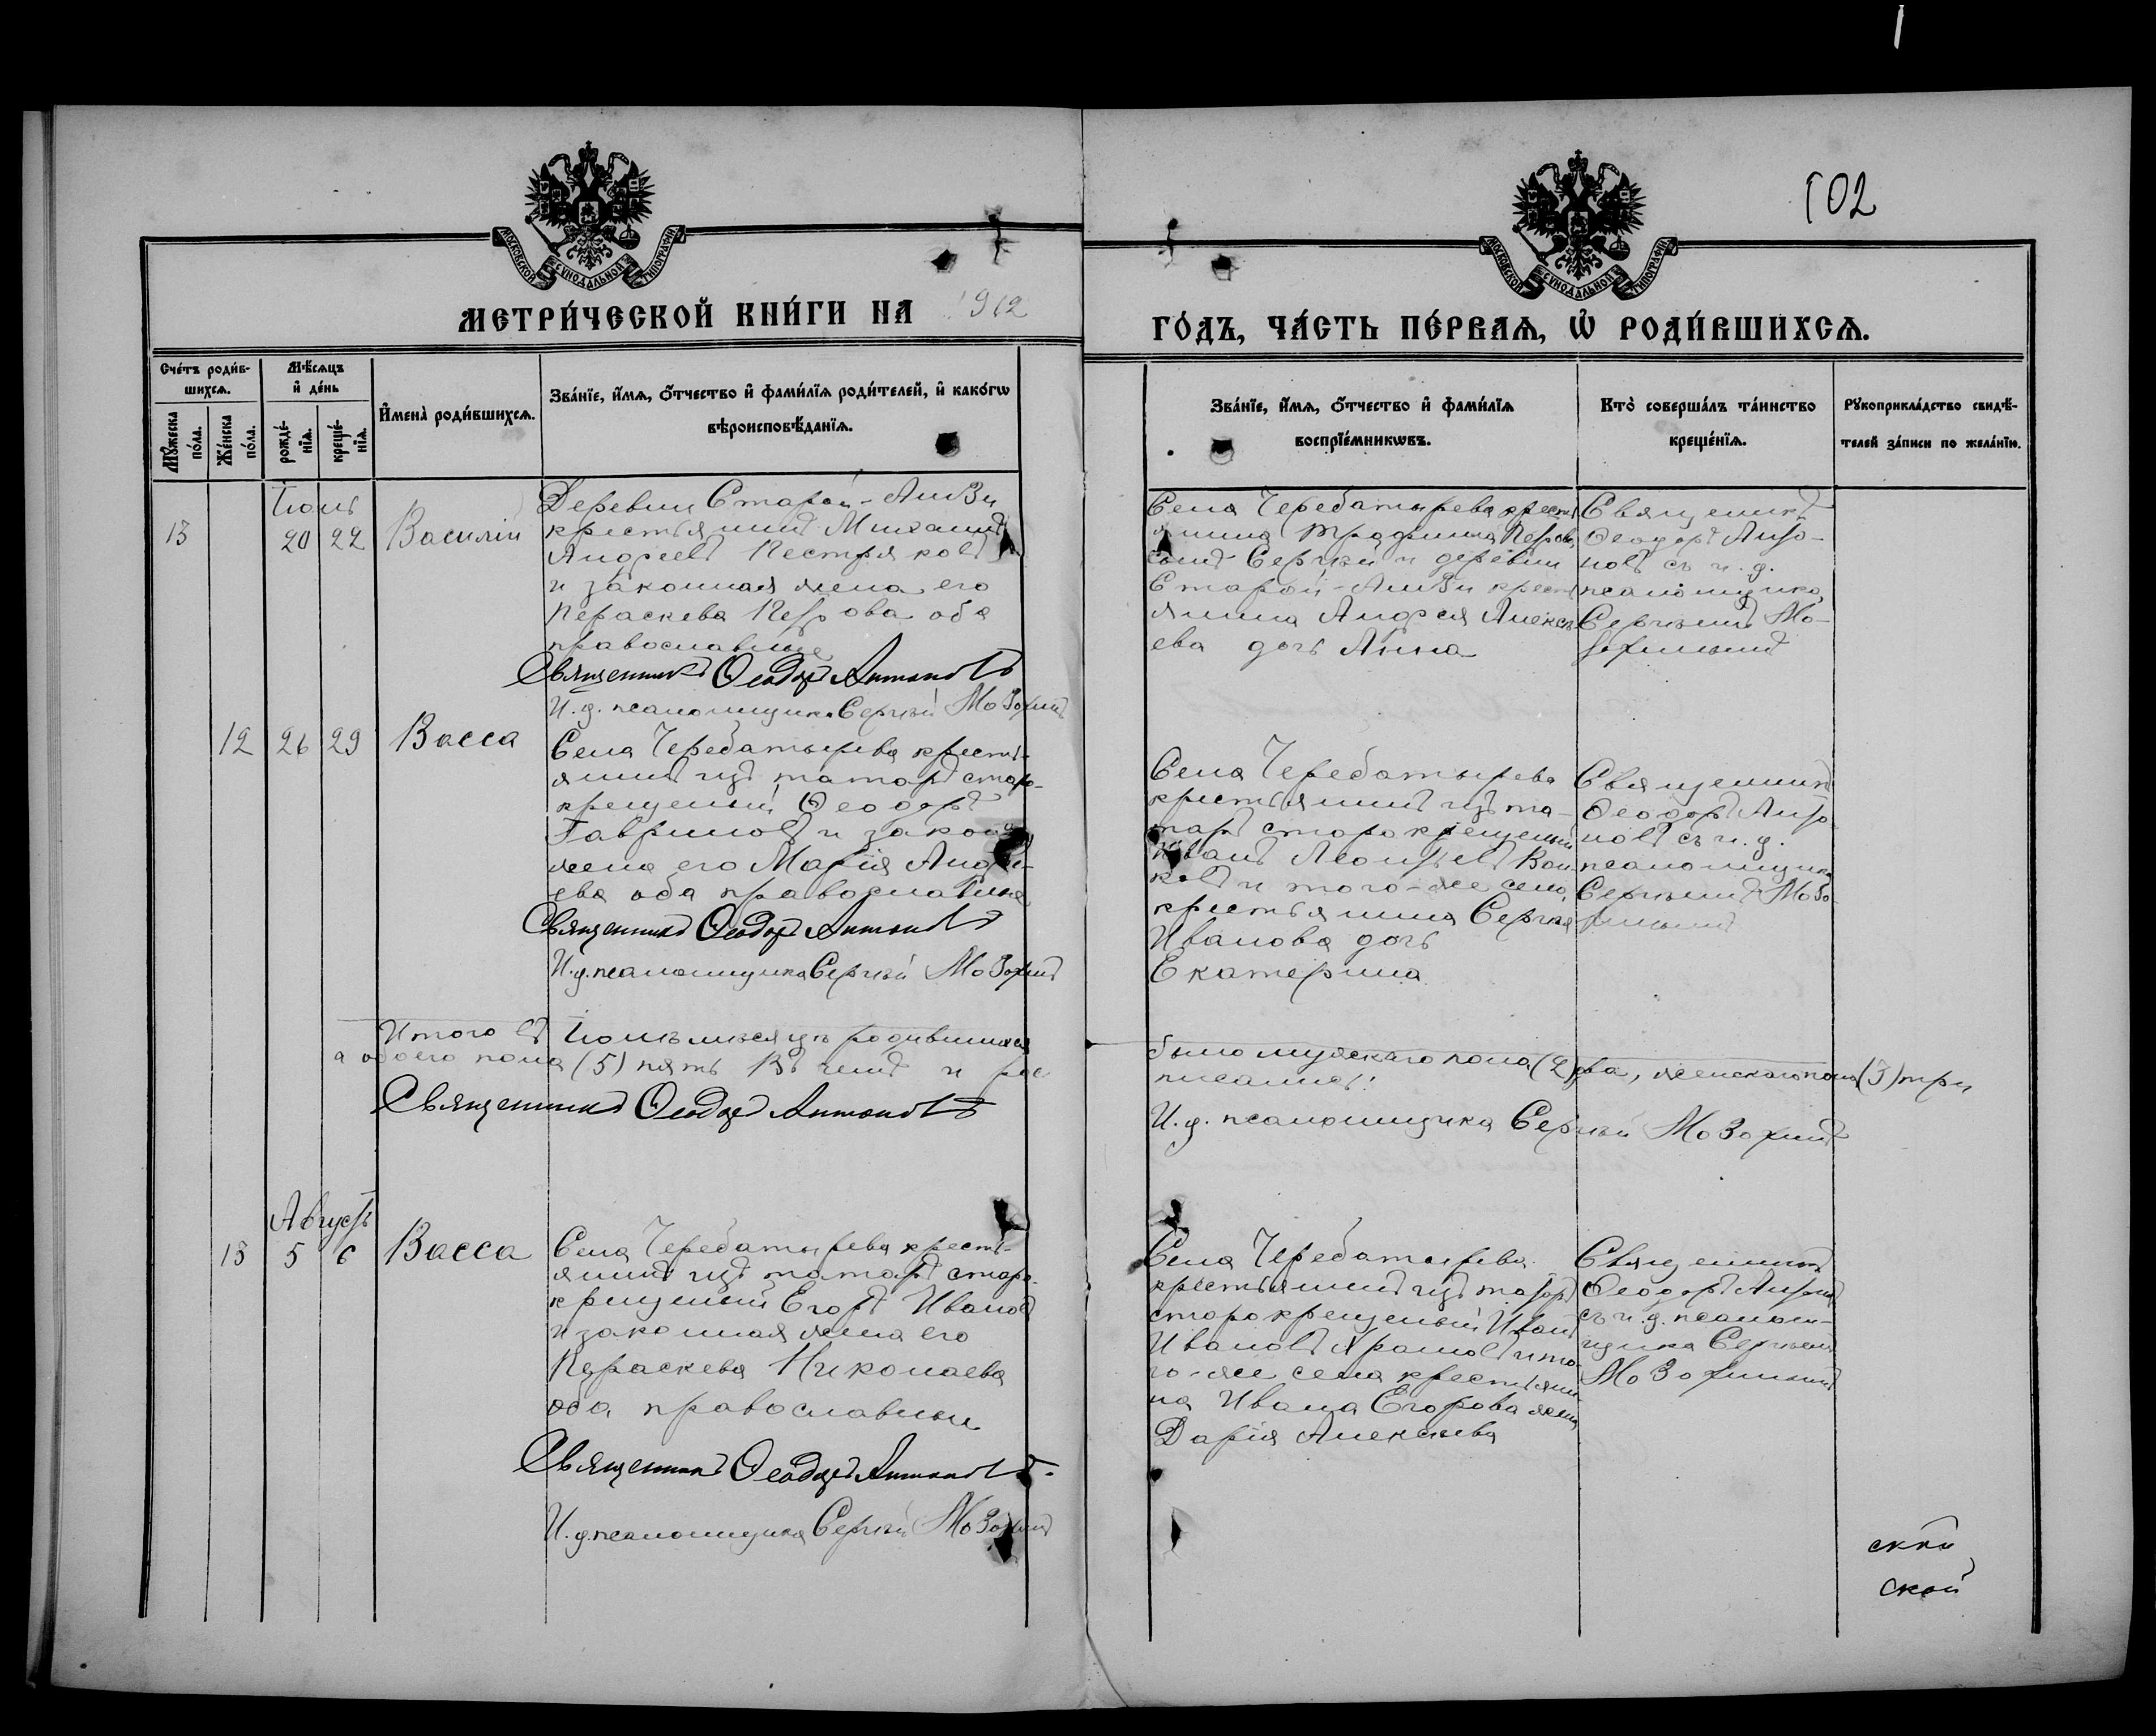 102
МОСКОВСКОЙ СѴНОДАЛЬНОЙ ТИПОГРАФІИ
МОСКОВСКОЙ СѴНОДАЛЬНОЙ ТИПОГРАФІИ
МЕТРИ́ЧЕСКОЙ КНИ́ГИ НА 1912
ГО́ДЪ, ЧА́СТЬ ПЕ́РВАѦ, Ѡ҆ РОДИ́ВШИХСѦ.
Сче́тъ роди́в-
шихсѧ.
Мѣ́сѧцъ
и҆ де́нь
Мꙋ́жеска
по́ла.
Же́нска
по́ла.
рожде́-
нїѧ.
креще́-
нїѧ.
И҆мена̀ роди́вшихсѧ.
Зва́нїе, и҆́мѧ, ѻ҆́тчество и҆ фами́лїѧ роди́телей, и҆ како́гѡ
вѣроисповѣ́данїѧ.
Зва́нїе, и҆́мѧ, ѻ҆́тчество и҆ фами́лїѧ
воспрїе́мникѡвъ.
Кто̀ соверша́лъ та́инство
креще́нїѧ.
Рꙋкоприкла́дство свидѣ́-
телей за́писи по жела́нїю.
Іюль
13 20 22 Василій
Деревни Старой-
крестьянинъ Михаилъ
Андреевъ Пестряковъ
и законная жена его
Пераскева Петрова оба
православные
Священникъ Ѳеодоръ Антоновъ
И. д. псаломщика Сергѣй Мозохинъ
Села Чередатырева крест
янина Перов.
сынъ Сергѣй и деревни
Старой- крест
янина Андрея Алексѣ
ева дочь Анна
Священникъ
Ѳеодоръ Анто-
новъ съ и. д.
псаломщика
Сергѣемъ Мо-
зохинымъ
12 26 29 Васса
Села Чередатырева кресть-
янинъ изъ татаръ старо-
крещеный Ѳеодоръ
Гавриловъ и законная
жена его Марія Андре-
ева оба православные
Священникъ Ѳеодоръ Антоновъ
И. д. псаломщика Сергѣй Мозохинъ
Села Чередатырева
крестьянинъ изъ та-
таръ старокрещеный
Иванъ Леонтьевъ Вол-
ковъ и того-же села
крестьянина Сергѣя
Иванова дочь
Екатерина
Священникъ
Ѳеодоръ Анто-
новъ съ и. д.
псаломщика
Сергѣемъ Мозо-
хинымъ
Итого въ Іюлѣ мѣсяцѣ родившихся было мужскаго пола (2) два, женскаго пола (3) три
а обоего пола (5) пять. Въ чемъ и рос писались:
Священникъ Ѳеодоръ Антоновъ
И. д. псаломщика Сергѣй Мозохинъ
Августъ
13 5 6 Васса
Села Чередатырева кресть-
янинъ изъ татаръ старо-
крещеный Егоръ Ивановъ
и законная жена его
Параскева Николаева
оба православные
Священникъ Ѳеодоръ Антоновъ.
И. д. псаломщика Сергѣй Мозохинъ
Села Чередатырева
крестьянинъ изъ татаръ
старокрещеный Иванъ
Ивановъ Храмовъ и то-
го-же села крестьяни-
на Ивана Егорова жена
Дарія Алексѣева
Священникъ
Ѳеодоръ Антоновъ
съ и. д. псалом-
щика Сергѣемъ
Мозохинымъ
ской